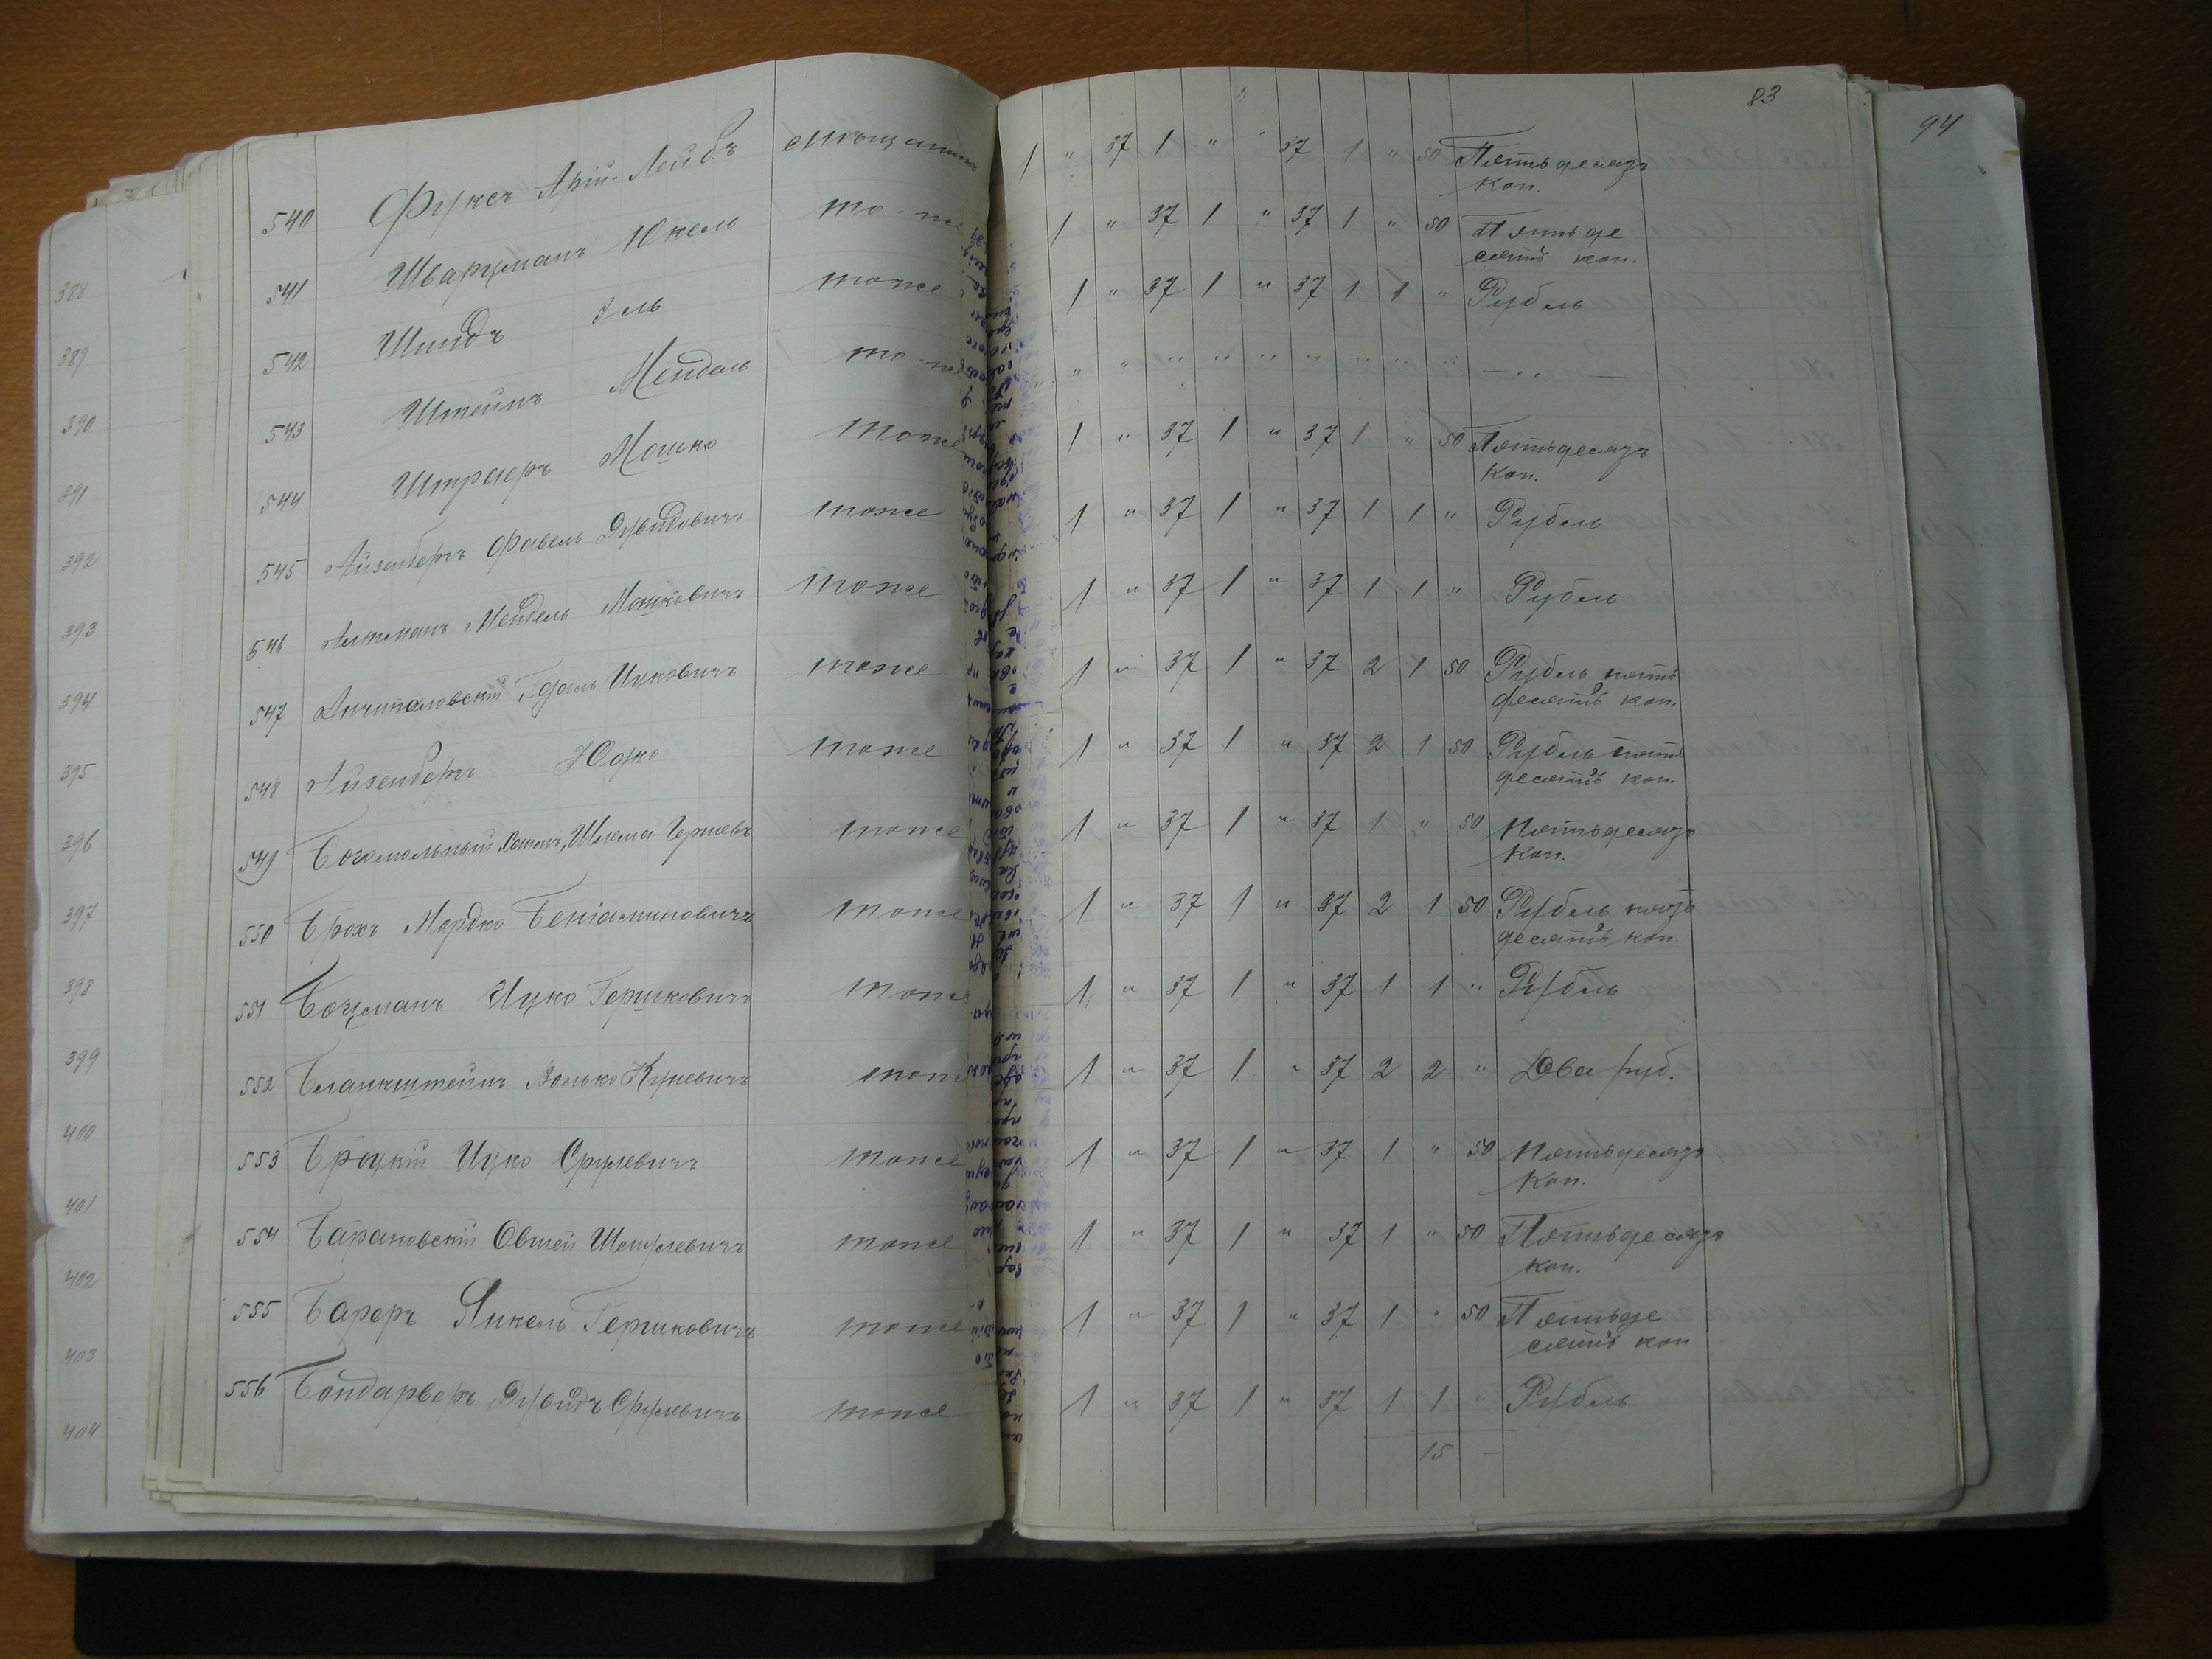 83
94
540 Фуксъ Арій-Лейбъ мѣщанинъ 1 " 37 1 " " 37 1 " 50 Пятьдесятъ
коп.
541 Шварцманъ Юкель то-же 1 " 37 1 " 37 1 " 50 Пятьде
сятъ коп.
542 Шмидъ Эль тоже 1 " 37 1 " 37 1 1 " Рубль
543 Штейнъ Мендель то-же " " " " " " " " " — " —
544 Штраеръ Мошко тоже 1 " 37 1 " 37 1 " 50 Пятьдесятъ
коп.
545 Айзенбергъ Фавель Дувидовичъ тоже 1 " 37 1 " 37 1 1 " Рубль
546 Альтманъ Мендель Мошковичъ тоже 1 " 37 1 " 37 1 1 " Рубль
547 Гдаль Ицковичъ тоже 1 " 37 1 " 37 2 1 50 Рубль пять
десятъ коп.
548 Айзенбергъ Юдко тоже 1 " 37 1 " 37 2 1 50 Рубль пять
десятъ коп.
549 Богомольный Хаимъ, Шлема-Гершевъ тоже 1 " 37 1 " 37 1 " 50 Пятьдесятъ
коп.
550 Брохъ Мордко Беніаминовичъ тоже 1 " 37 1 " 37 2 1 50 Рубль пять
десятъ коп.
551 Боцманъ Ицко Гершковичъ тоже 1 " 37 1 " 37 1 1 " Рубль
552 Бланкштейнъ Волько тоже 1 " 37 1 " 37 2 2 " Два руб.
553 Броцкій Ицко Срулевичъ тоже 1 " 37 1 " 37 1 " 50 Пятьдесятъ
коп.
554 Барановскій Овшей Шмулевичъ тоже 1 " 37 1 " 37 1 " 50 Пятьдесятъ
коп.
555 Бареръ Янкель Гершковичъ тоже 1 " 37 1 " 37 1 " 50 Пятьде
сятъ коп
556 Бондарверъ Дувидъ Срулевичъ тоже 1 " 37 1 " 37 1 1 " Рубль
15 —
388
389
390
391
392
393
394
395
396
397
398
399
400
401
402
403
404